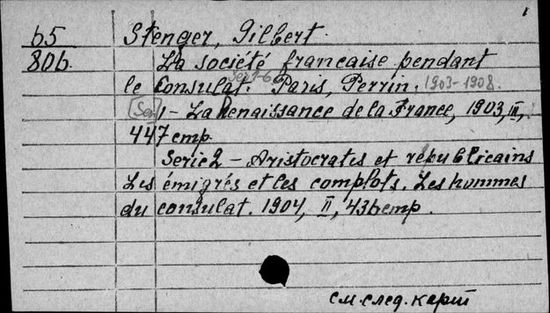 1
65 Stenger, Gilbert.
80b. La société francaise pendant
le Consulat. Ser 1-6 Paris, Perrin. 1903-1908.
[Ser] 1 - La Renaissance de la France, 1903, III,
447 cmp.
Serie 2 - Aristocrates et republicains
Les émigrés et les complots. Les hommes
du consulat. 1904, II, 436 cmp.
см. след. карт